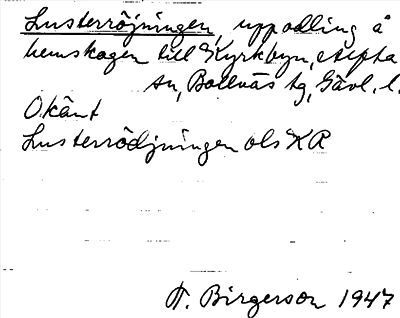 Lusterröjningen, uppodling å
hemskogen till Kyrkbyn,
sn, Bollnäs tg, Gävl. l.
Okänt
Lusterrödjningen ols KR
T. Birgerson 1947